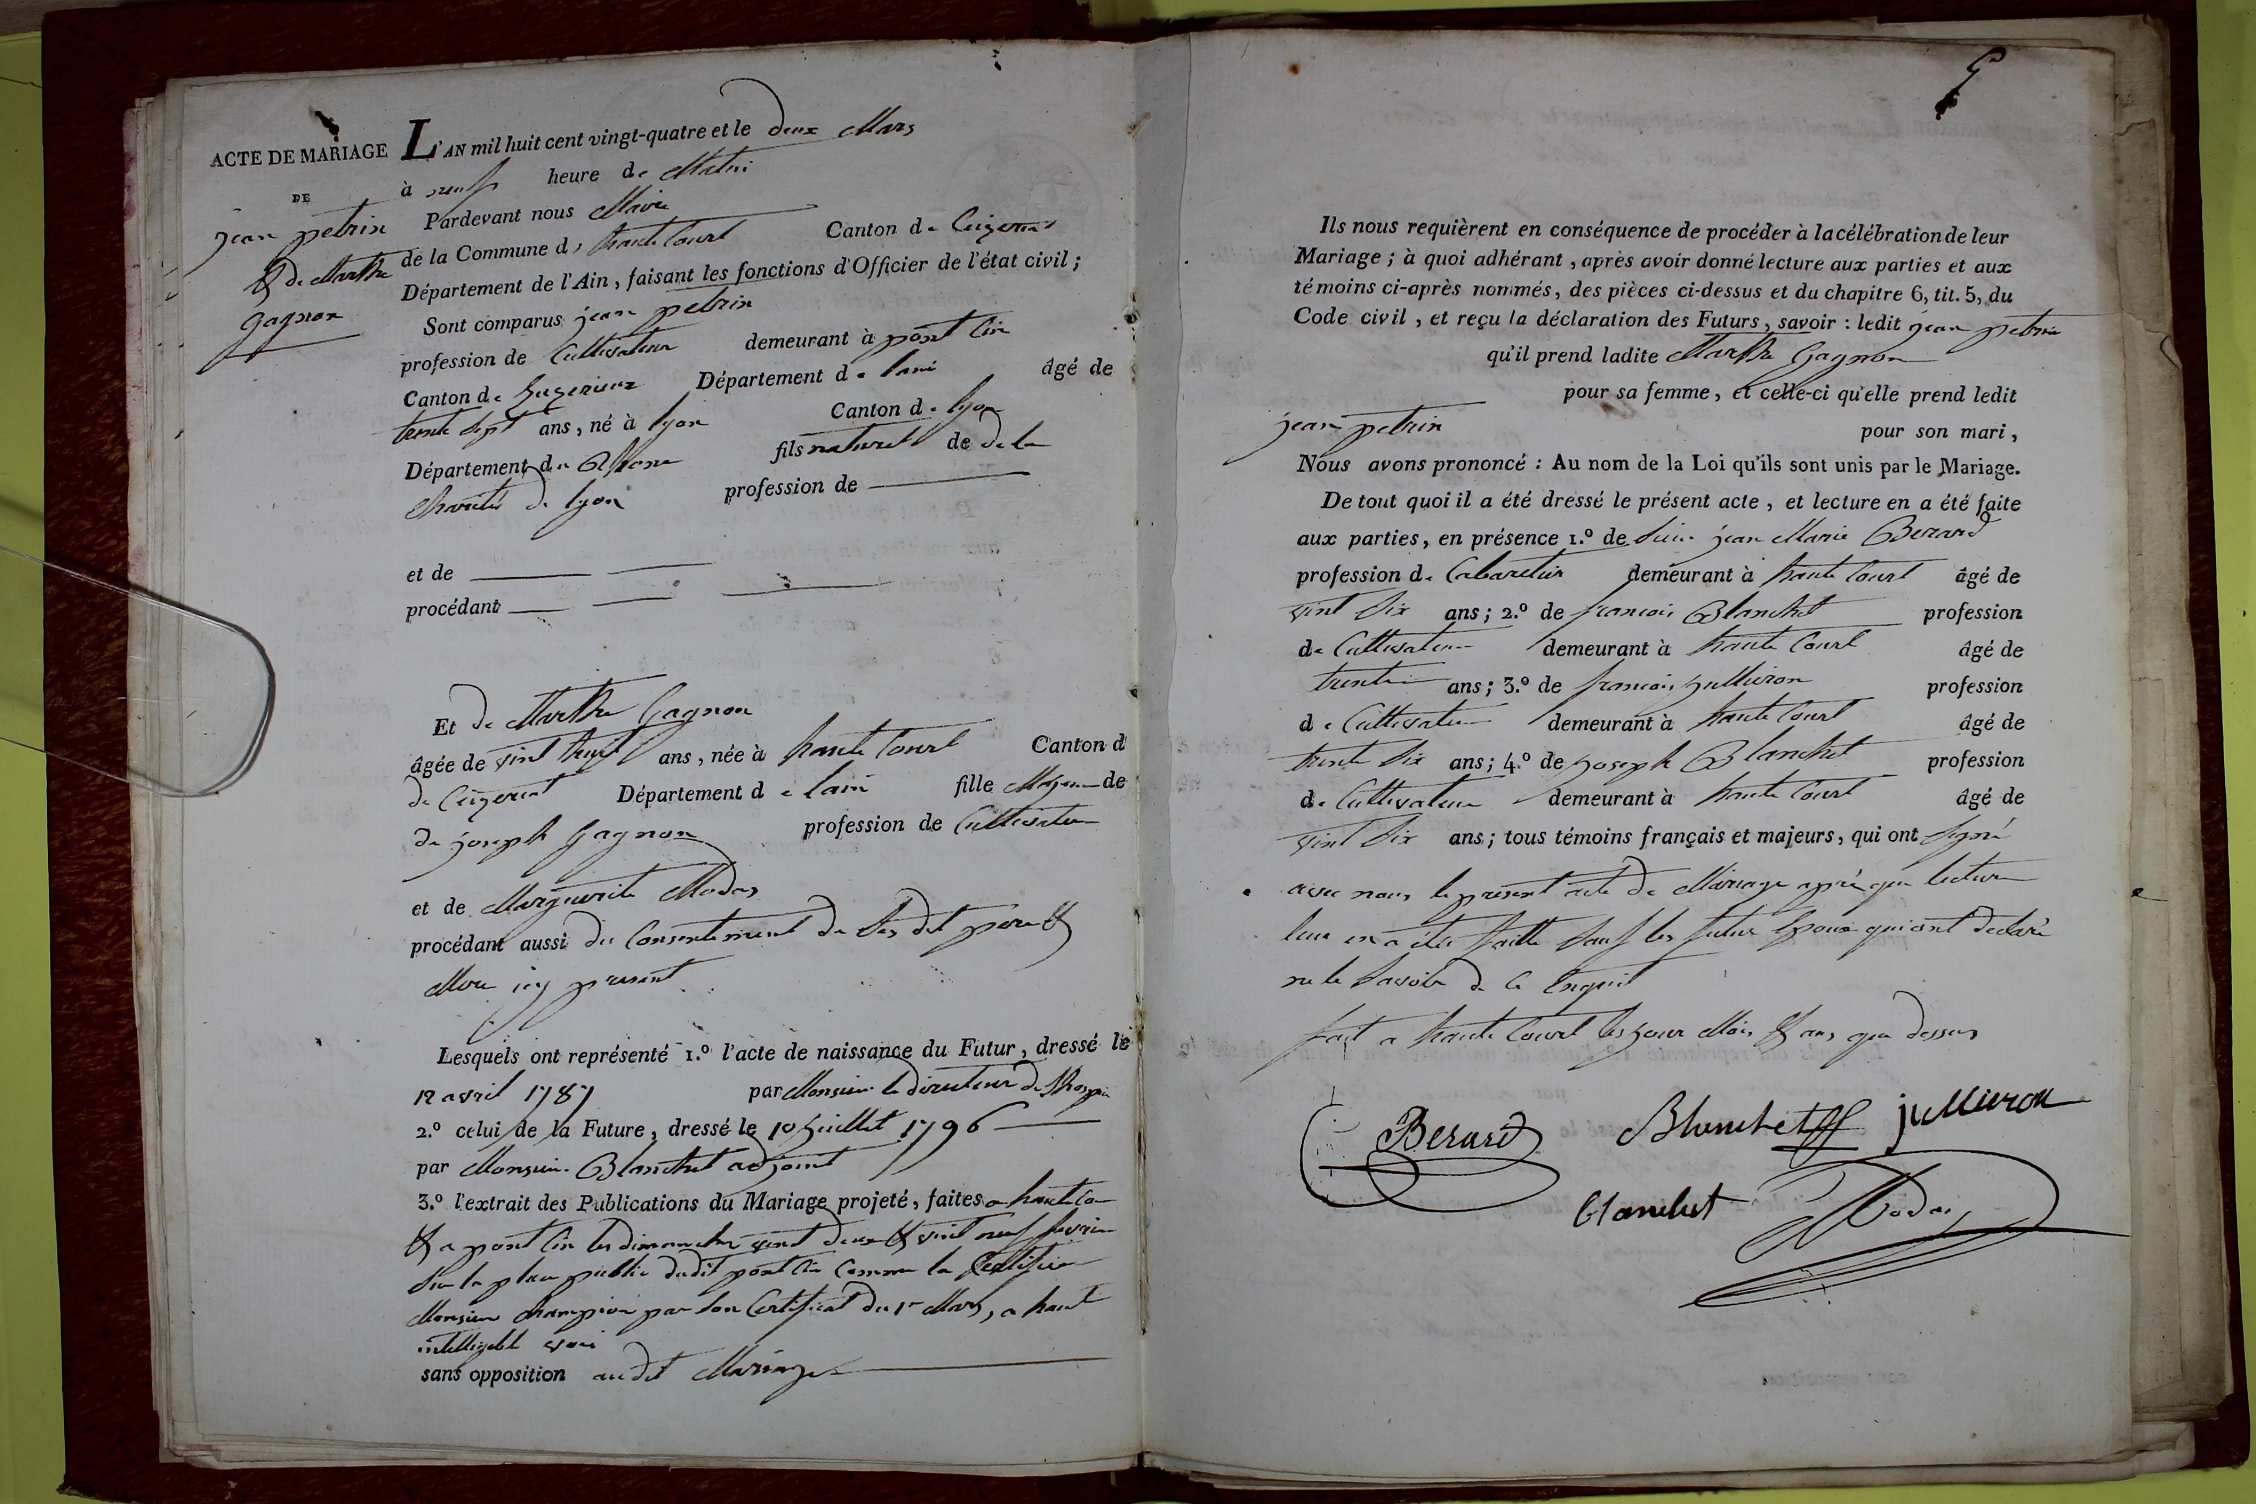 ACTE DE MARIAGE
DE
jean petrin
& de Marthe
gagnon
L'AN mil huit cent vingt-quatre et le deux Mars
à neuf heure de Matin
Pardevant nous Maire
de la Commune d, haute Court Canton de Ceizeriat
Département de l'Ain, faisant les fonctions d'Officier de l'état civil;
Sont comparus jean petrin
profession de Cultivateur demeurant à pont din
Canton de Département de lain âgé de
trente sept ans, né à lyon Canton de lyon
Département du Rhone fils naturel de de la
Charité de lyon profession de
et de
procédant
Et de Marthe Gagnon
âgée de vint huit ans, née à haute Court Canton d
de Ceizeriat Département de lain fille Majeure de
de joseph Gagnon profession de Cultivateur
et de Marguerite Modas
procédant aussi du Consentement de Ses dit pere &
Mere icy present
Lesquels ont représenté 1.º l'acte de naissance du Futur, dressé le
12 avril 1787 par Monsieur le directeur de lhospice
2.º celui de la Future, dressé le 10 juillet 1796
par Monsieur Blanchet adjoint
3.º l'extrait des Publications du Mariage projeté, faites a haute Co
& a pont din les dimanches vint deux & vint neuf fevrier
Sur la place public dudit pont din Comme la Certifier
Monsieur Champion par Son Certificat du 1er Mars, a haut
intelligible voix
sans opposition audit Mariage
Ils nous requièrent en conséquence de procéder à la célébration de leur
Mariage; à quoi adhérant, après avoir donné lecture aux parties et aux
témoins ci-après nommés, des pièces ci-dessus et du chapitre 6, tit. 5, du
Code civil, et reçu la déclaration des Futurs, savoir: ledit jean petrin
qu'il prend ladite Marthe Gagnon
pour sa femme, et celle-ci qu'elle prend ledit
jean petrin pour son mari,
Nous avons prononcé: Au nom de la Loi qu'ils sont unis par le Mariage.
De tout quoi il a été dressé le présent acte, et lecture en a été faite
aux parties, en présence 1.º de Sieur jean Marie Berard
profession de Cabaretier demeurant à haute Court âgé de
vint Six ans; 2.º de francois Blanchet profession
de Cultivateur demeurant à haute Court âgé de
trente ans; 3.º de francois jullieron profession
de Cultivateur demeurant à haute Court âgé de
trente Six ans; 4.º de joseph Blanchet profession
de Cultivateur demeurant à haute Court âgé de
vint Six ans; tous témoins français et majeurs, qui ont Signé
avec nous le present acte de Mariage après que lecture
leur en a étée faitte Sauf les futur Epoux qui ont declaré
ne le Savoir de ce Enquit
fait a haute Court les jour Mois & ans que dessus
Berard Blanchet jullieron
blanchet Rodas